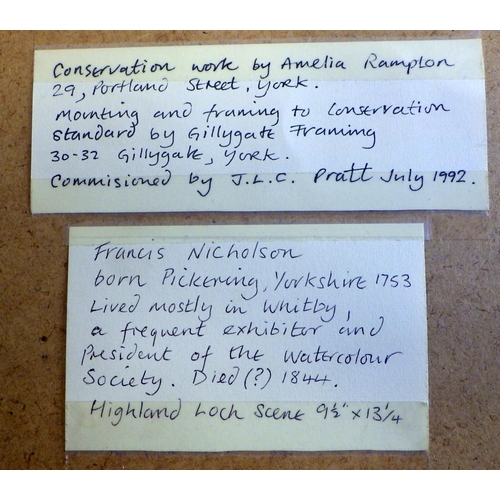 Conservation work by Amelia Ramplon
29, Portland Street, York.
mounting and framing to Conservation
standard by Gillygate Framing
30-32 Gillygate, York.
Commisioned by J.L.C. Pratt July 1992.
Francis Nicholson
born Pickering, Yorkshire 1753
Lived mostly in Whitby,
a frequent exhibitor and
President of the Watercolour
Society. Died (?) 1844.
Highland Loch Scene 9½" x 13¼